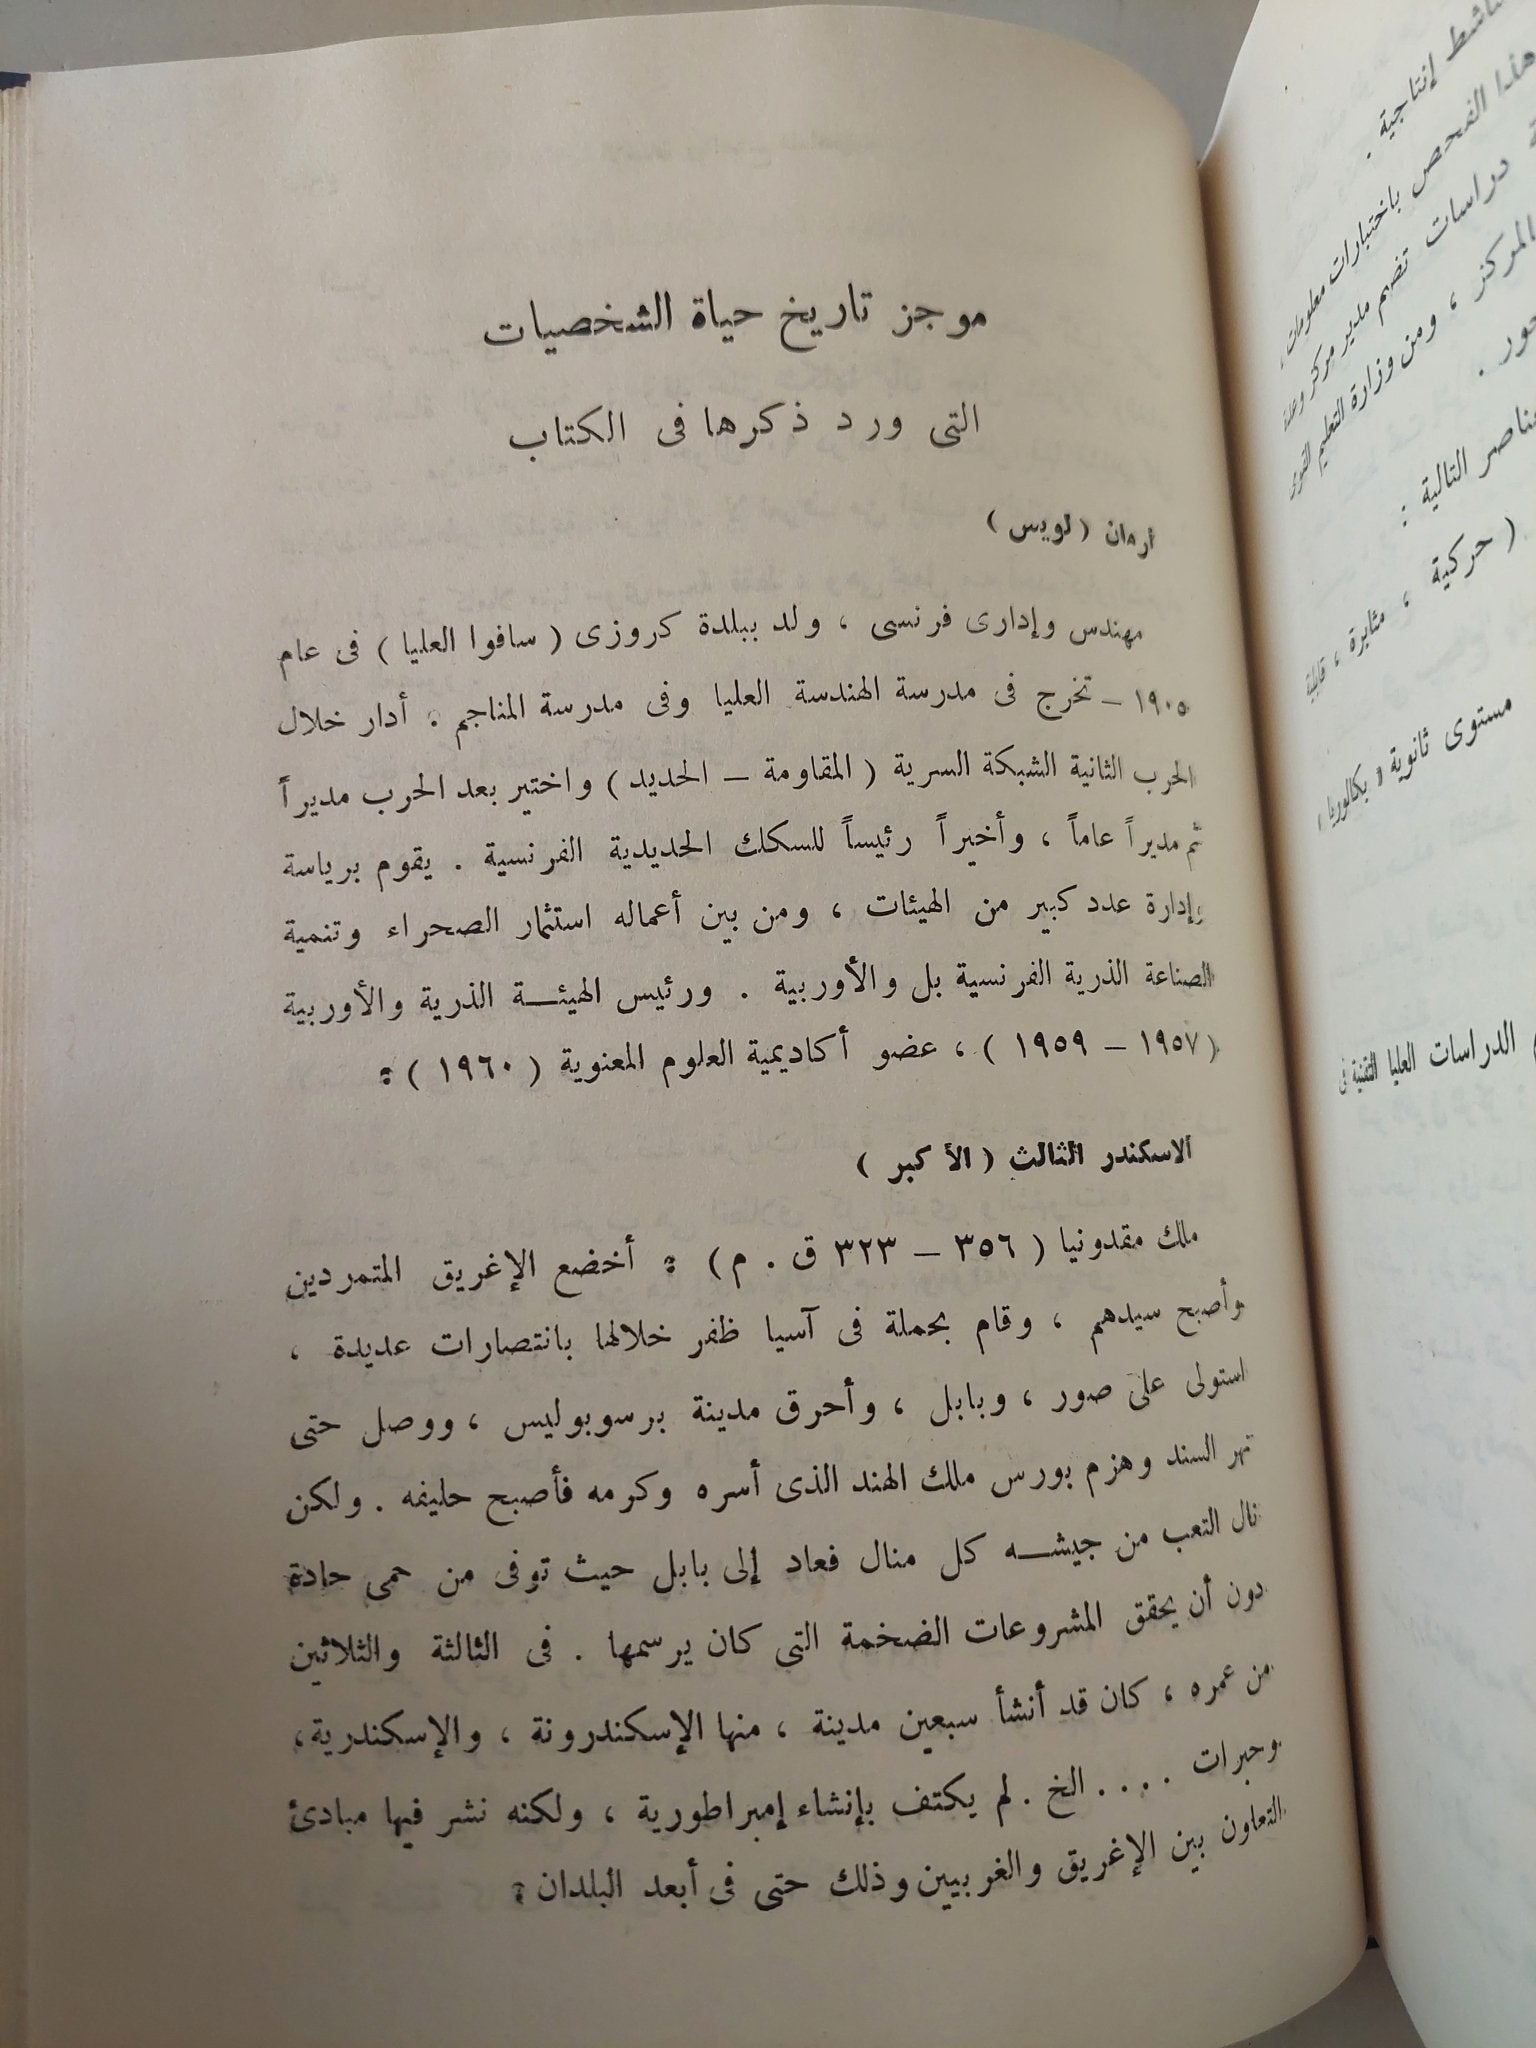 موجز تاريخ حياة الشخصيات
التى ورد ذكرها فى الكتاب
أرمان ( لويس )
مهندس وإدارى فرنسى ، ولد ببلدة كروزى ( سافوا العليا ) فى عام
١٩٠٥ – تخرج فى مدرسة الهندسة العليا وفى مدرسة المناجم . أدار خلال
الحرب الثانية الشبكة السرية ( المقاومة – الحديد ) واختير بعد الحرب مديراً
ثم مديراً عاماً ، وأخيراً رئيساً للسكك الحديدية الفرنسية . يقوم برياسة
وإدارة عدد كبير من الهيئات ، ومن بين أعماله استثمار الصحراء وتنمية
الصناعة الذرية الفرنسية بل والأوربية . ورئيس الهيئة الذرية والأوربية
( ١٩٥٧ – ١٩٥٩ ) ، عضو أكاديمية العلوم المعنوية ( ١٩٦٠ ) .
الاسكندر الثالث ( الأكبر )
ملك مقدونيا ( ٣٥٦ – ٣٢٣ ق . م ) . أخضع الإغريق المتمردين
وأصبح سيدهم ، وقام بحملة فى آسيا ظفر خلالها بانتصارات عديدة ،
استولى على صور ، وبابل ، وأحرق مدينة برسوبوليس ، ووصل حتى
نهر السند وهزم بورس ملك الهند الذى أسره وكرمه فأصبح حليفه . ولكن
نال التعب من جيشه كل منال فعاد إلى بابل حيث توفى من حمى حادة
دون أن يحقق المشروعات الضخمة التى كان يرسمها . فى الثالثة والثلاثين
من عمره ، كان قد أنشأ سبعين مدينة ، منها الإسكندرونة ، والإسكندرية،
وحبرات .... الخ . لم يكتف بإنشاء إمبراطورية ، ولكنه نشر فيها مبادئ
التعاون بين الإغريق والغربيين وذلك حتى فى أبعد البلدان .
إنتاجية .
هذا الفحص باختبارات معلومات ،
دراسات تضم مدير مركز
المركز ، ومن وزارة التعليم
التالية :
( حركية ، مثابرة ، قابلية
مستوى ثانوية « بكالوريا »
الدراسات العليا التقنية فى